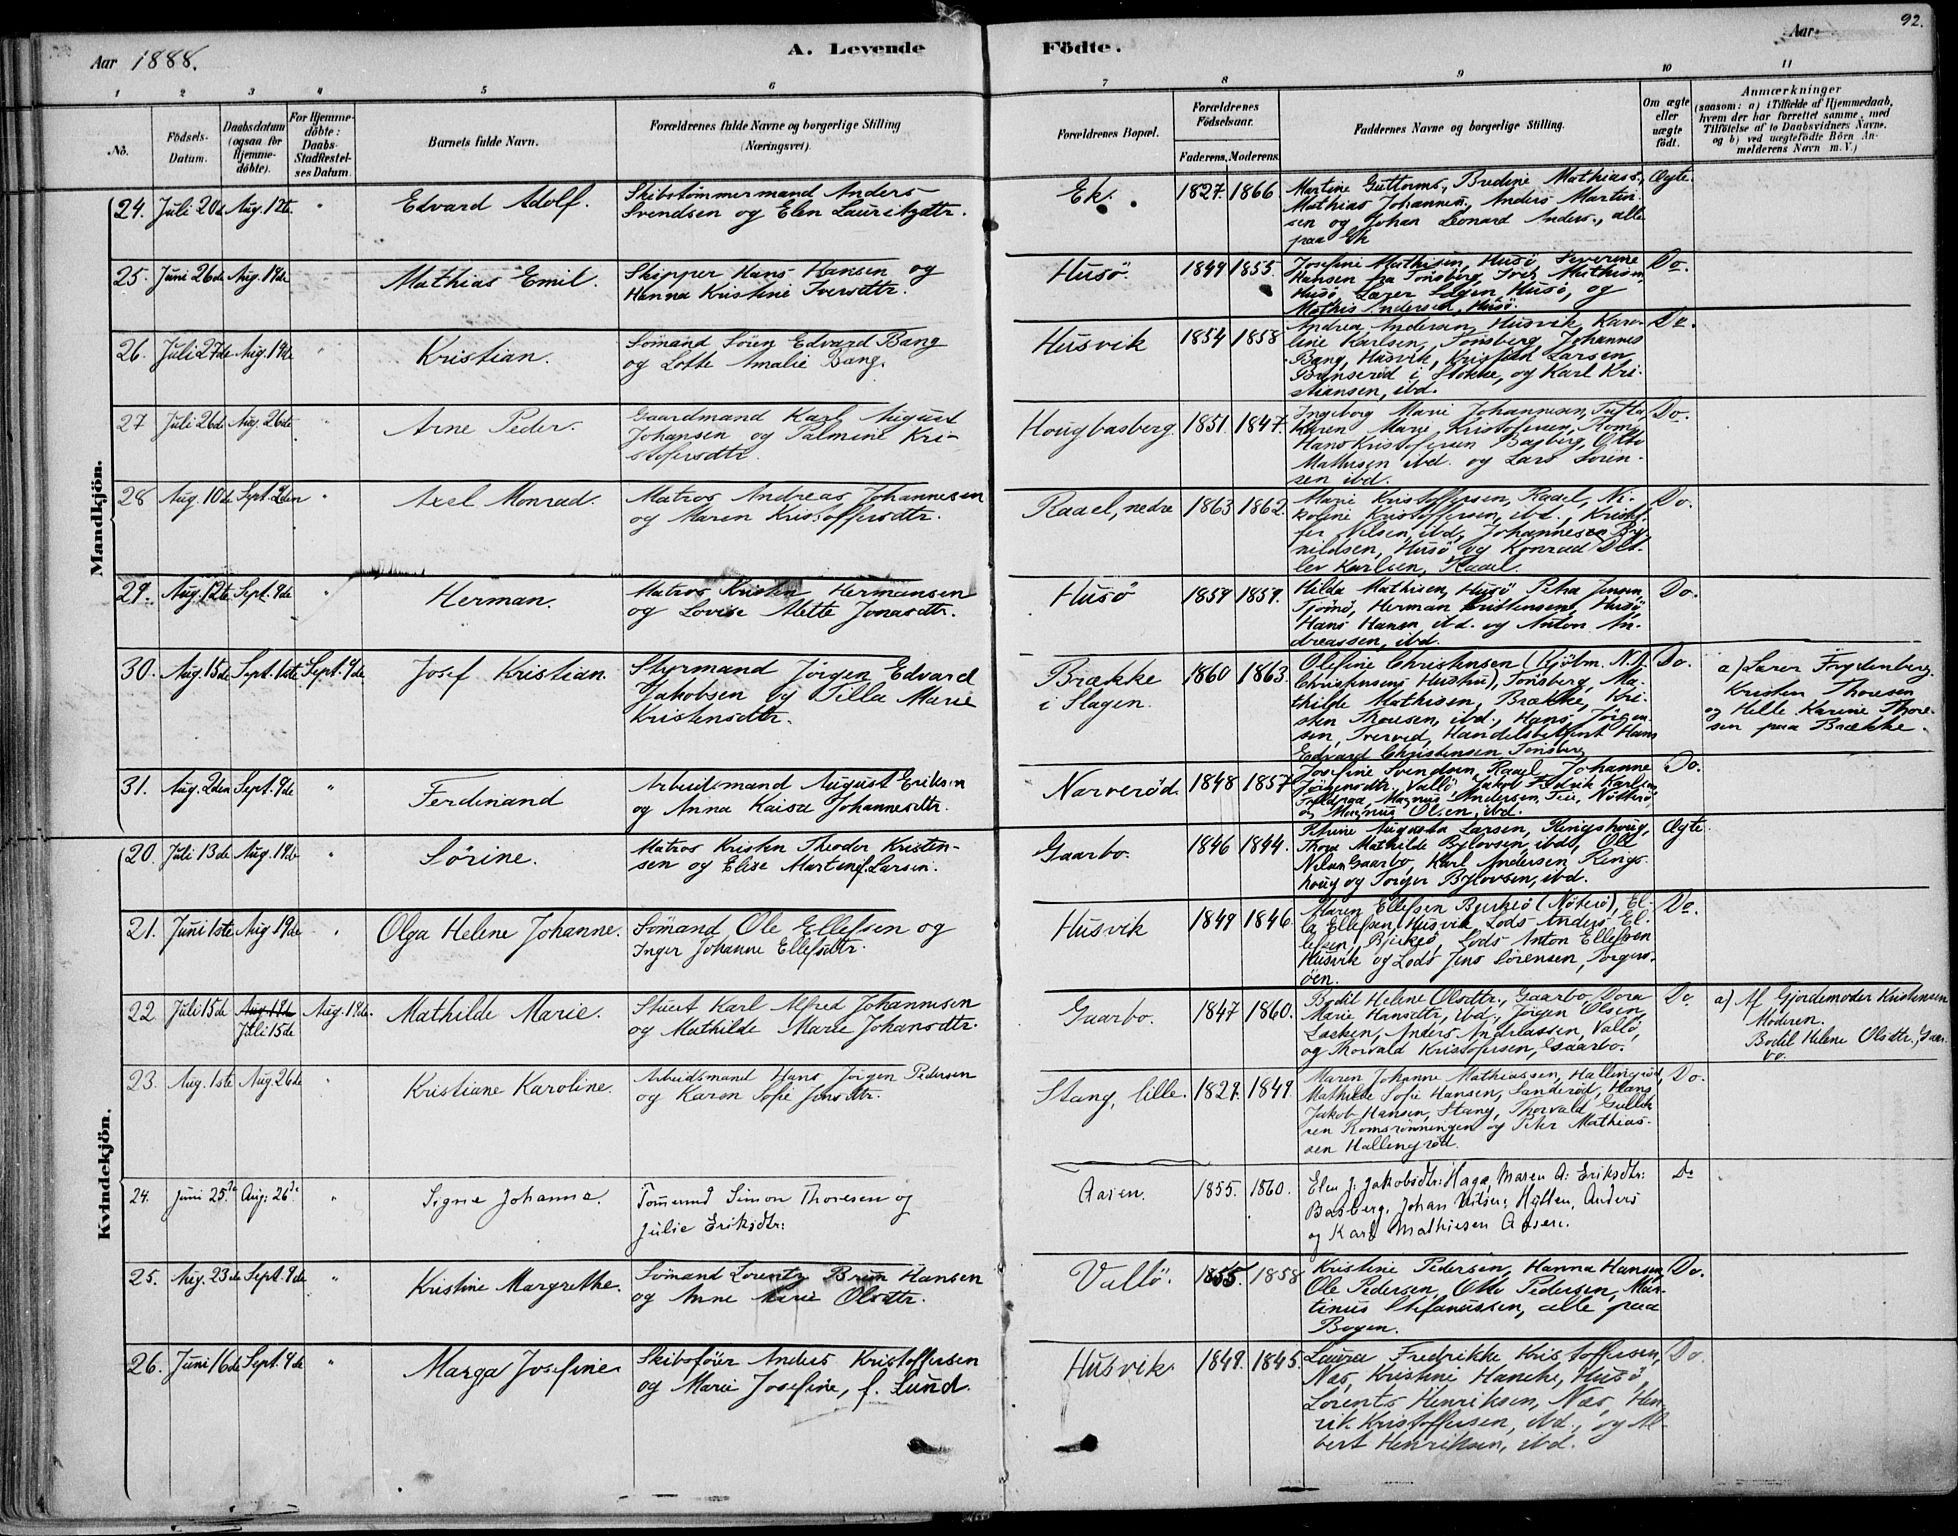 92.
Aar 1888.
A. Levende Födte.
Aar
1 2 3 4 5 6 7 8 9 10 11
No.
Födsels-Datum.
Daabsdatum (ogsaa for Hjemme-döbte).
For Hjemme-döbte: Daabs-Stadfæstel-ses Datum.
Barnets fulde Navn.
Forældrenes fulde Navne og borgerlige Stilling (Næringsvei).
Forældrenes Bopæl.
Forældrenes Födselsaar.
Faderens. Moderens.
Faddernes Navne og borgerlige Stilling.
Om ægte eller uægte født.
Anmærkninger
(saasom: a) i Tilfælde af Hjemmedaab, hvem der har forrettet samme, med Tilföielse af to Daabsvidners Navne, og b) ved uægtefödte Börn Anmelderens Navn m. V.)
Mandkjön.
24. Juli 20de Aug. 12te " Edvard Adolf.
Skibstømmermand Anders
Svendsen og Elen Lauritzdttr.
Ek. 1827. 1866
Martine Guttorms, Bredine Mathiass,
Mathias Johannes, Anders Martin-
sen og Johan Leonard Anders., alle
paa Ek
Ægte.
25. Juni 26de Aug. 19de Mathias Emil.
Skipper Hans Hansen og
Hanna Kristine Iversdttr.
Husö. 1849 1855.
Josefine Mathisen, Husö, Severine
Hansen fra Tönsberg, Iver Mathisen
Husö, Husö, og
Mathis Andersen, Husö.
Do.
26. Juli 27de Aug. 19de " Kristian.
Sømand Sören Edvard Bang
og Lotte Amalie Bang.
Husvik 1854 1858
Andrea Andersen, Husvik, Karo-
line Karlsen, Tönsberg, Johannes
Bang, Husvik, Kristian Larsen
i Stokke, og Karl Kri-
stiansen, ibd.
Do.
27 Juli 26de Aug. 26de " Arne Peder.
Gaardmand Karl August
Johansen og Palmine Kri-
stofersdtr.
Hougbasberg. 1851. 1847.
Ingeborg Marie Johannesen, Tufta
Karen Marie Kristofersen, Rom,
Hans Kristofersen Basberg, Otto
Mathisen ibd. og Lars Sören-
sen ibd.
Do.
28 Aug. 10de Sept. 2den " Axel Monrad.
Matros Andreas Johannesen
og Maren Kristoffersdtr.
Raael, nedre 1863 1862.
Marie Kristoffersen, Raael, Ni-
koline Kristoffersen, ibd., Kristof-
fer Nilsen, ibd., Johannes
Husö og Konrad Det-
lev Karlsen, Raael.
Do.
29. Aug. 12te Sept. 9de " Herman.
Matros Kristen Hermansen
og Lovise Mette Jonasdtr.
Husö 1859 1859.
Hilda Mathisen, Husö Petra Jensen,
Tjömö, Herman Kristensen, Husö,
Hans Hansen ibd. og Anton An-
dreassen, ibd.
Do.
30. Aug. 15de Sept. 1ste Sept. 9de Josef Kristian.
Styrmand Jörgen Edvard
Jakobsen og Tilla Marie
Kristensdtr.
Brække
i Slagen.
1860 1863.
Olefine Christensen (Kjöbm. N. A.
Christensens Hustru), Tönsberg, Ma-
thilde Mathisen, Brække, Kri-
sten Thoresen, ibd., Hans Jörgen-
sen, Handelsbetjent Hans
Edvard Christensen Tönsberg
Do.
a) Lærer Frydenberg.
Kristen Thoresen
og Helle Karine Thore-
sen paa Brække.
31. Aug. 2den Sept. 9de " Ferdinand
Arbeidsmand August Eriksen
og Anna Kaisa Johannesdtr.
Narverød. 1848 1857
Josefine Svendsen, Raael, Johanne
Jörgensdtr, Vallö, Jakob Karlsen
Magnus Andersen, Nötterö
og Magnus Olsen, ibd.
Do.
Kvindekjön.
20. Juli 13de Aug. 19de " Sörine.
Matros Kristen Theodor Kristen-
sen og Elise Martine f. Larsen.
Gaarbo. 1846 1844.
Petrine Augusta Larsen, Ringshoug,
Thora Mathilde Bylovsen, ibd., Ole
Nilsen Gaarbo, Karl Andersen, Rings-
houg og Torger Bylovsen, ibd.
Ægte.
21. Juni 1ste Aug 19de " Olga Helene Johanne.
Sömand Ole Ellefsen og
Inger Johanne Ellefsdtr.
Husvik 1849 1846.
Maren Ellefsen Bjerkö (Nöterö), El-
la Ellefsen, Husvik Lods Anders El-
lefsen, Bjerkö, Lods Anton Ellefsen
Husvik og Lods Jens Sörensen, Torgers-
öen.
Do.
22 Juli 15de Aug. 19de
Juli 15de
Aug. 19de. Mathilde Marie.
Stuert Karl Alfred Johannesen
og Mathilde Marie Johansdtr.
Gaarbo. 1847 1860.
Bodil Helene Olsdttr., Gaarbo, Dora
Marie Hansdttr, ibd., Jörgen Olsen
Anders Andreassen, Vallö
og Thorvald Kristofersen, Gaarbo.
Do.
a) Af Gjordemoder Kristensen
Moderen.
Bodil Helene Olsdttr., Gaar-
bo.
23. Aug. 1ste Aug. 26de " Kristiane Karoline.
Arbeidsmand Hans Jörgen Pedersen
og Karen Sofie Jensdtr.
Stang, lille. 1829. 1849.
Maren Johanne Mathiassen, Hallingröd,
Mathilde Sofie Hansen, Sanderöd, Hans
Jakob Hansen, Stang, Thorvald Gullik-
sen Romsrönningen og Peter Mathias-
sen Hallingröd.
Do.
24. Juni 25de Aug: 26de " Signe Johanna.
Tømmermd Simon Thoresen og
Julie Eriksdtr:
Aasen. 1855. 1860.
Elen J: Jakobsdtr: Haga, Maren A: Eriksdtr:
Basberg, Johan Nilsen, Anders
og Karl Mathiesen Aasen.
Do
25. Aug. 23de Sept. 9de " Kristine Margrethe.
Sömand Lorentz Brun Hansen
og Anne Marie Olsdtr.
Vallö. 1855. 1858
Kristine Pedersen, Hanna Hansen,
Ole Pedersen, Otto Pedersen, Mar-
tinus Stefanussen, alle paa
Bogen.
Do.
26. Juni 16de Sept. 9de " Marga Josefine
Skibsförer Anders Kristoffersen
og Marie Josefine, f. Lund.
Husvik. 1849. 1845.
Laura Fredrikke Kristoffersen,
Næs, Kristine Haneche, Husö,
Lorents Henriksen, Næs, Hen-
rik Kristoffersen, ibd., og Al-
bert Henriksen, ibd.
Do.